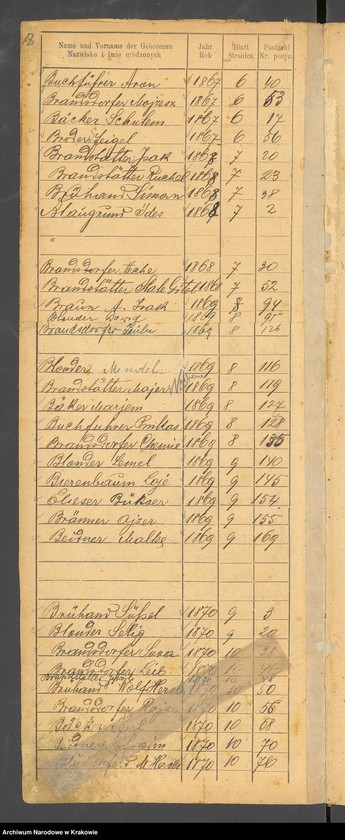 8
Name und Vorname der Geborenen Jahr Blatt Postzahl
Nazwisko i imię urodzonych Rok Stronica Nr. pozyc.
Buchführer Aron 1867 6 40
Brandsdorfer Mojżesz 1867 6 53
Bäcker Schulem 1867 6 17
Broder Feigel 1867 6 56
Brandstätter Izak 1868 7 20
Brandstätter Ruchel 1868 7 23
Brühand Simon 1868 7 38
Blaugrund Ides 1868 7 2
Brandsdorfer 1868 7 30
Brandstätter 1868 7 52
Braun A. Izak 1869 8 94
1869 8 95
Brandsdorfer 1869 8 126
Blonder Mendel 1869 8 116
Brandstätter Majer 1869 8 119
Bäker Marjem 1869 8 127
Buchfuhrer Pinkas 1869 8 128
Brandsdorfer 1869 8 135
Blonder Lemel 1869 9 140
Bierenbaum 1869 9 145
Elieser Bükser 1869 9 154
Brämer Ajzer 1869 9 155
Beidner Malke 1869 9 169
Brühand Süssel 1870 9 3
Blonder Selig 1870 9 20
Brandsdorfer Sara 1870 10 38
Brandsdorfer Leib 1870 10
Bruhand Wolf Hersch 1870 10 50
Brandsdorfer 1870 10 56
1870 10 68
1870 10 70
M Hersch 1870 10 76
Archiwum Narodowe w Krakowie